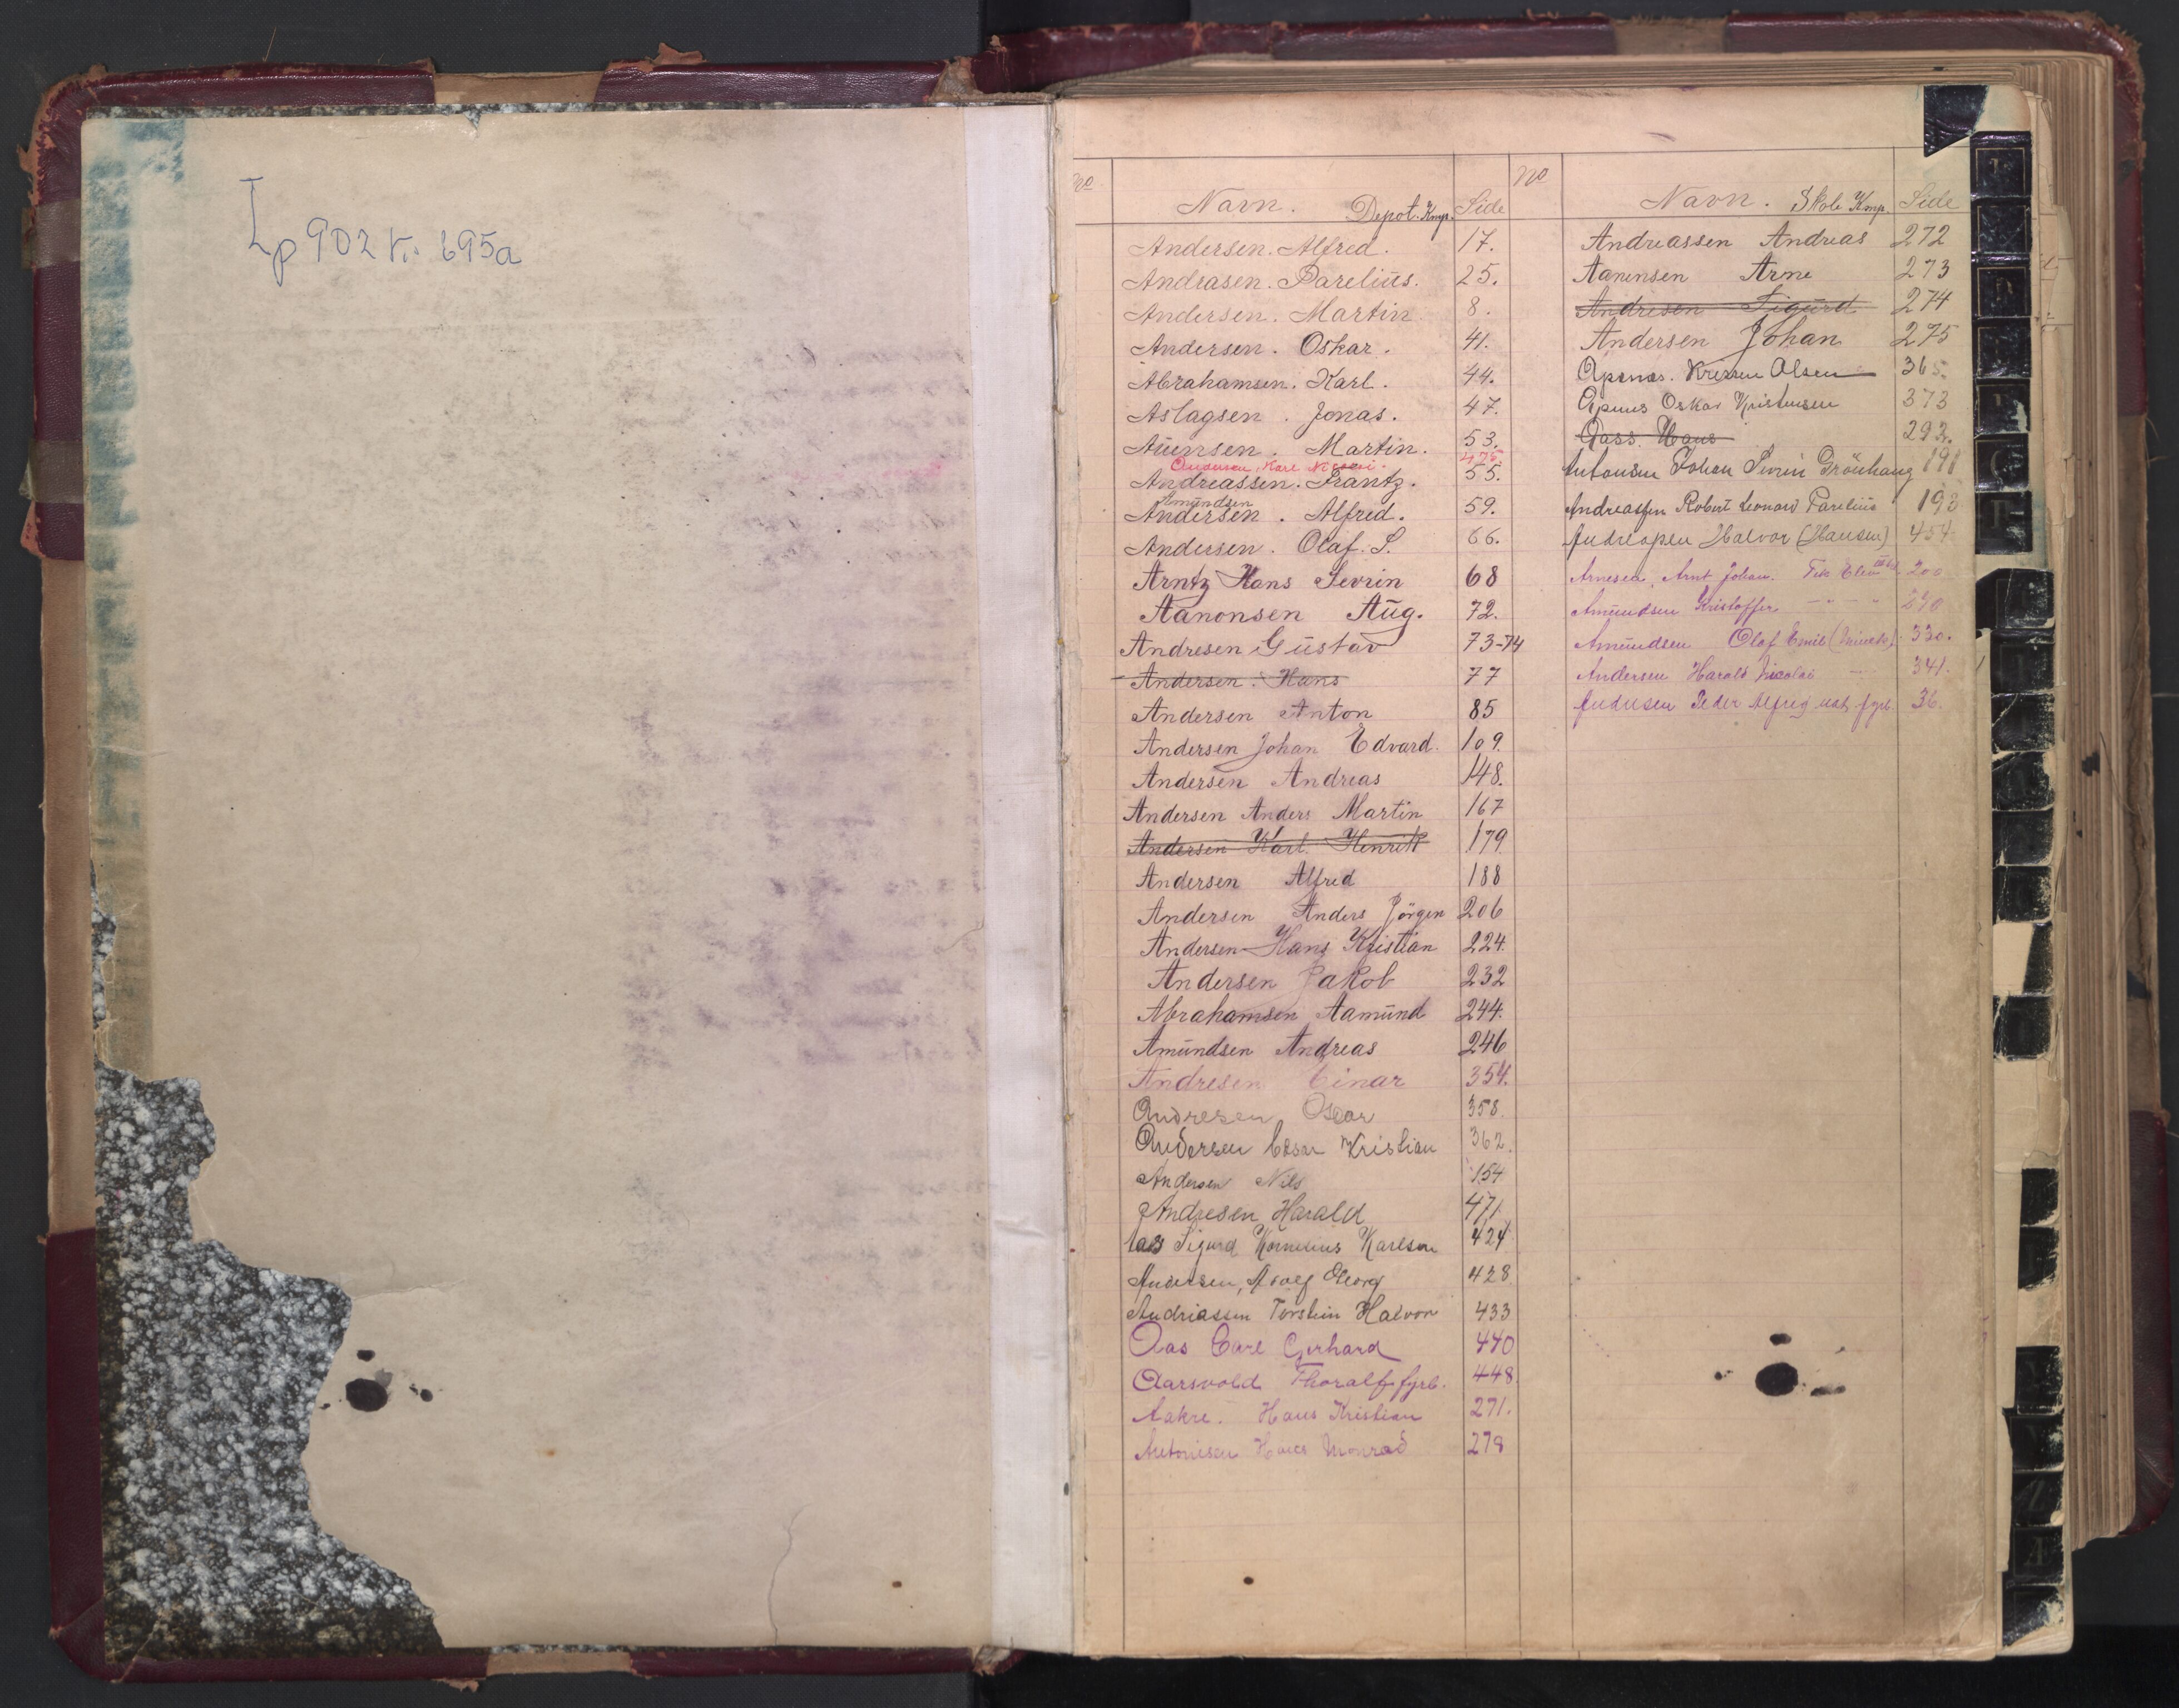 Lp 902 k. 695a
No Navn. Depot. Kmp. Side
Andersen. Alfred. 17.
Andrasen. Parelius. 25.
Andersen. Martin 8.
Andersen. Oskar. 41.
Abrahamsen. Karl. 44.
Aslagsen. Jonas. 47.
Auensen. Martin. 53.
Andersen, Karl 475
Andreassen. Frantz. 55.
Amundsen
Andersen. Alfred. 59.
Andersen. Olaf. S. 66.
Arntz Hans Sevrin 68
Aanonsen Aug. 72.
Andresen Gustav 73-74
Andersen. Hans 77
Andersen Anton 85
Andersen Johan Edvard. 109.
Andersen Andreas 148.
Andersen Anders Martin 167
Andersen Karl Henrik 179
Andersen Alfred 188
Andersen Anders Jörgen 206
Andersen Hans Kristian 224.
Andersen Jakob 232
Abrahamsen Aamund 244.
Amundsen Andreas 246
Andresen Einar 354.
Andresen Oscar 358.
Andersen Kristian 362.
Andersen Nils 154
Andresen Harald 471.
Aas Sigurd Kornelius Karlsen 424
Andersen, Adolf Georg 428.
Andriassen Torstein Halvor 433
Aas Carl Gerhard 440
Aarsvold Thoralf fyrb. 448.
Aakre. Hans Kristian 271.
Antonisen Hans Monrad 278
No Navn. Skole Kmp. Side
Andreassen Andreas 272
Aanensen Arne 273
Andresen Sigurd 274
Andersen Johan 275
Apenes. Olsen 365.
Apenes Oskar Kristensen 373
Aass. Hans 292.
Antonsen Johan Sevrin Grönhaug 191
Andreassen Robert Leonard Parelius 193
Andreasen Halvor (Hansen) 454
Arnesen, Arnt Johan. 200
Amundsen Kristoffer - " - " 270
Amundsen Olaf Emil 330.
Andersen Harald Nicolai 341.
Andersen Peder Alfred fyrb. 36.